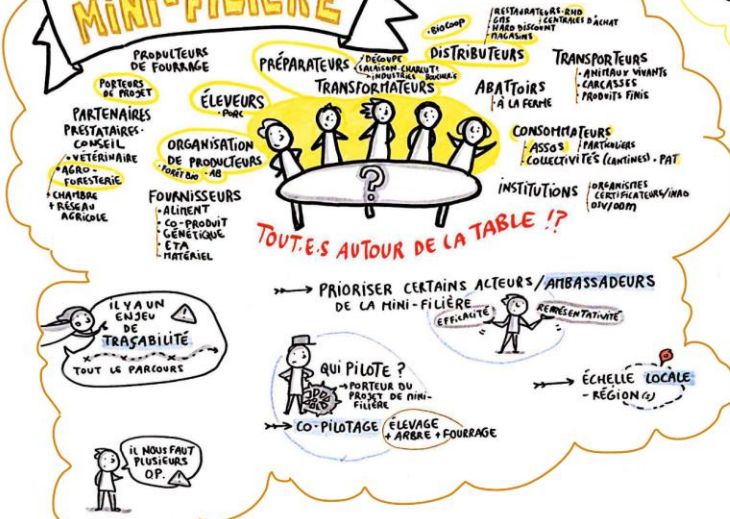 MINI-FILIÈRE
PRODUCTEURS
DE FOURRAGE
PORTEURS
DE PROJET
PARTENAIRES
PRESTATAIRES-
CONSEIL
• VÉTÉRINAIRE
• AGRO-
FORESTERIE
• CHAMBRE
+ RÉSEAU
AGRICOLE
ÉLEVEURS
• PORC
ORGANISATION
DE PRODUCTEURS
• FORÊT BIO • AB
FOURNISSEURS
• ALIMENT
• CO-PRODUIT
• GÉNÉTIQUE
• ETA
• MATÉRIEL
PRÉPARATEURS
• DÉCOUPE
• SALAISON-CHARCUT.
• INDUSTRIES BOUCHERS
TRANSFORMATEURS
• BIOCOOP
DISTRIBUTEURS
• RESTAURATEURS-RHD
• GMS
• CENTRALES D'ACHAT
• HARD DISCOUNT
• MAGASINS
ABATTOIRS
• À LA FERME
TRANSPORTEURS
• ANIMAUX VIVANTS
• CARCASSES
• PRODUITS FINIS
CONSOMMATEURS
• ASSOS
• PARTICULIERS
• COLLECTIVITÉS (CANTINES) • PAT
INSTITUTIONS
• ORGANISMES
CERTIFICATEURS/INAO
• DIV/DDM
?
TOUT.E.S AUTOUR DE LA TABLE !?
IL Y A UN
ENJEU
DE
TRAÇABILITÉ
TOUT LE PARCOURS
PRIORISER CERTAINS ACTEURS/AMBASSADEURS
DE LA MINI-FILIÈRE
EFFICACITÉ
REPRÉSENTATIVITÉ
QUI PILOTE ?
→ PORTEUR DU
PROJET DE MINI-
FILIÈRE
CO-PILOTAGE
ÉLEVAGE
+ ARBRE + FOURRAGE
ÉCHELLE LOCALE
- RÉGION(S)
IL NOUS FAUT
PLUSIEURS
O.P.